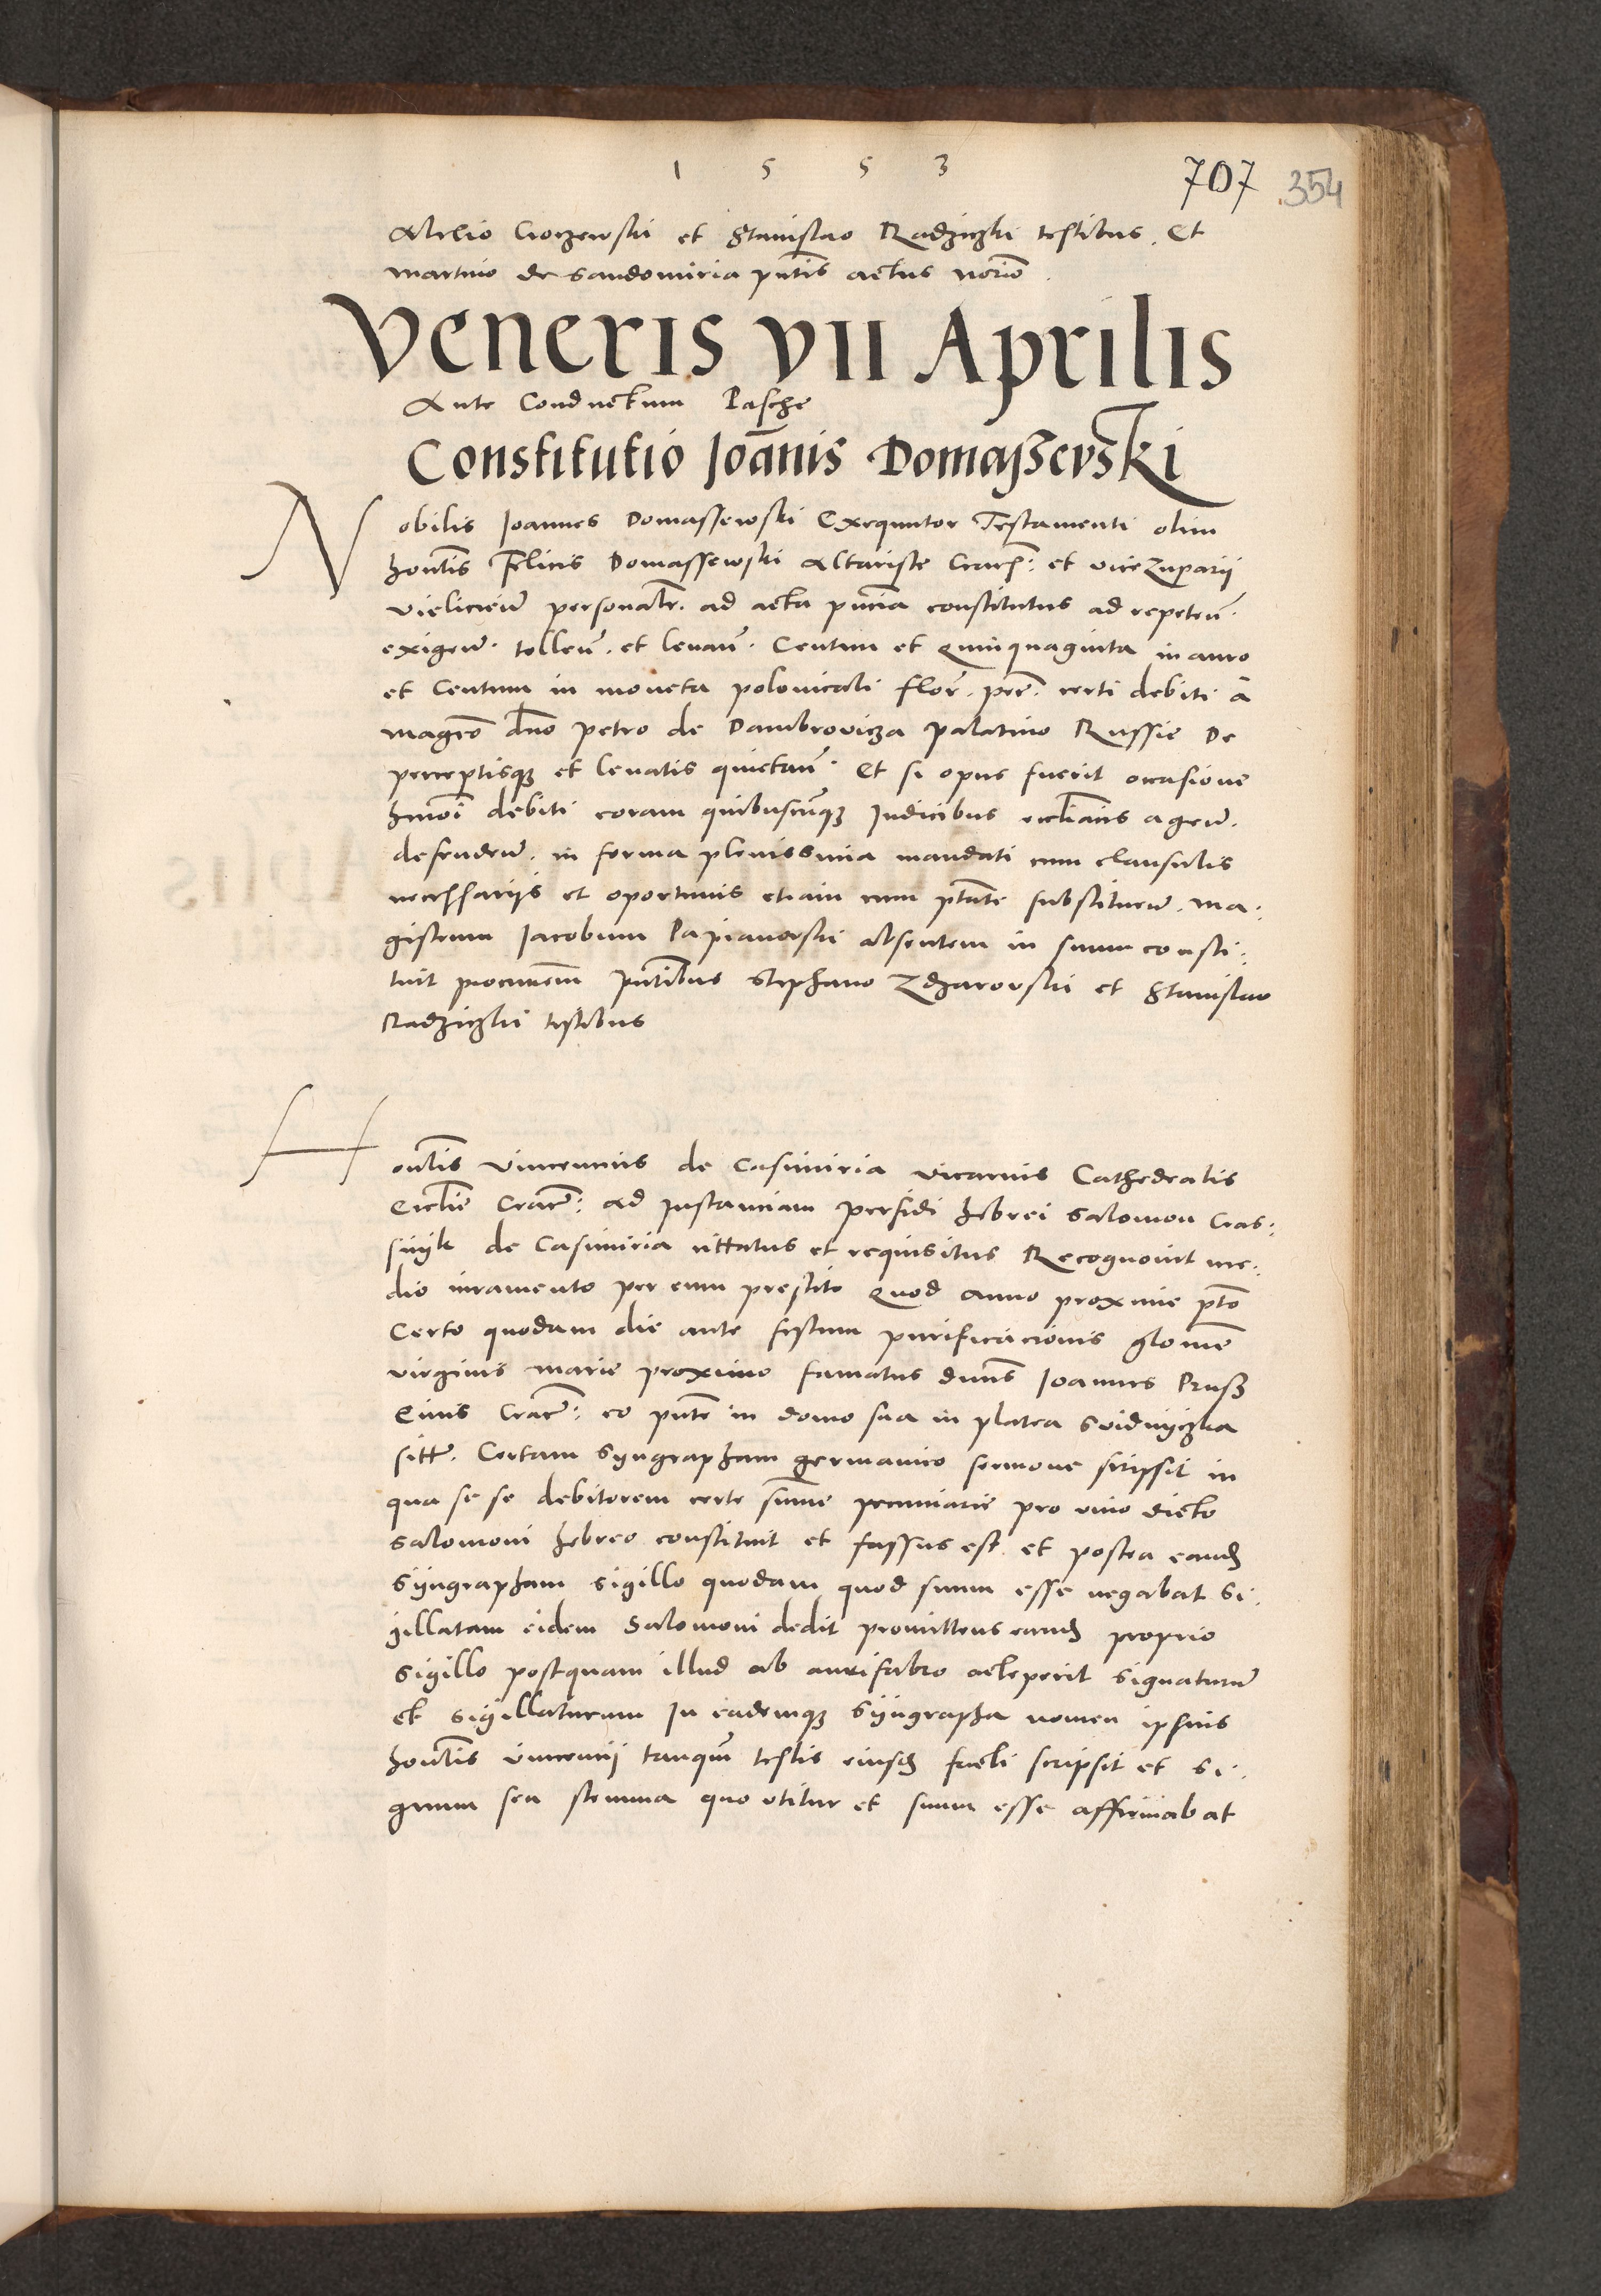 1 5 5 3
707 354
et Stanislao Radziczki testibus. Et
martino de Sandomiria pntis actus norio.
Veneris VII Aprilis
Ante Conductum Pasche
Constitutio Joānis Domaszewski
Nobilis Joannes Domassewski Exequutor Testamenti olim
hontis Felicis Domassewski Altariste Cracn: et vicezuparii
Vielicień personalr. ad acta pncia constitutus ad repeteñ.
exigeñ. tolleñ. et levañ. Centum et Quinquaginta in auro
et Centum in moneta polonicali flor. certi debiti a
magco dno Petro de Dambrovicza palatino Russie De
perceptisqz et levatis quietañ. Et si opus fuerit occasione
hmoi debiti coram quibuscunqz Judicibus ecclianis ageñ.
defendeñ. in forma plenissima mandati cum clausulis
necessariis et oportunis etiam cum ptate substitueñ. ma:
gistrum Jacobum Papianowski absentem in suum consti:
tuit procurem pntibus Stephano Zdzarovski et Stanislao
Radziczki testibus
Hontis Vincencius de Casimiria vicarius Cathedralis
Ecclie Cracñ: ad Instanciam perfidi hebrei Salomon Cras:
snyk de Casimiria cittatus et requisitus Recognovit me:
dio iuramento per eum prestito Quod anno proxime pto
Certo quodam die ante festum purificacionis glome
virginis Marie proximo famatus dnus Joannes Prusz
Civis Cracñ: eo pnte in domo sua in platea Svidnyczka
sitt. Certam Syngrapham germanico sermone scripsit in
qua se se debitorem certe sume pecuniarie pro vino dicto
Salomoni hebreo constituit et fassus est et postea eandz
Syngrapham sigillo quodam quod suum esse negabat Si:
gillatam eidem Salomoni dedit promittens eandz proprio
sigillo postquam illud ab aurifabro acceperit signaturū
et sigillaturum In eademqz Syngrapha nomen ipsius
hontis Vincencii tanqm testis eiusdz facti scripsit et Si:
gnum seu stemma quo utitur et suum esse affirmabat